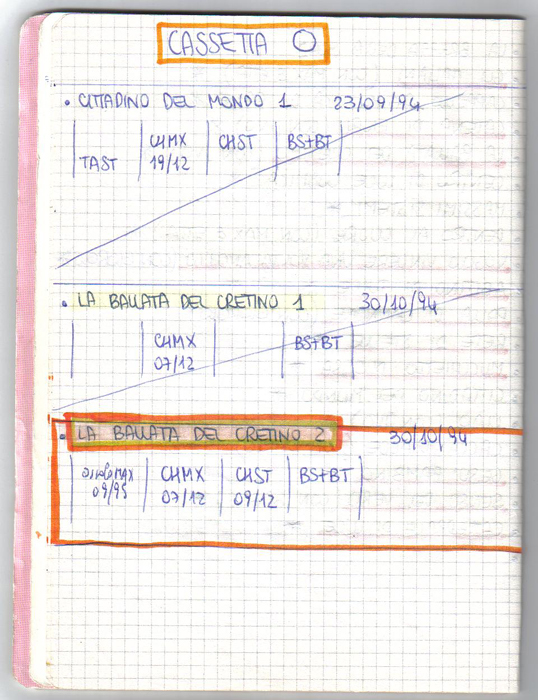 CASSETTA O
• CITTADINO DEL MONDO 1 23/09/94
TAST CHMX 19/12 CHST BS+BT
• LA BALLATA DEL CRETINO 1 30/10/94
CHMX 07/12 BS+BT
• LA BALLATA DEL CRETINO 2 30/10/94
09/95 CHMX 07/12 CHST 09/12 BS+BT